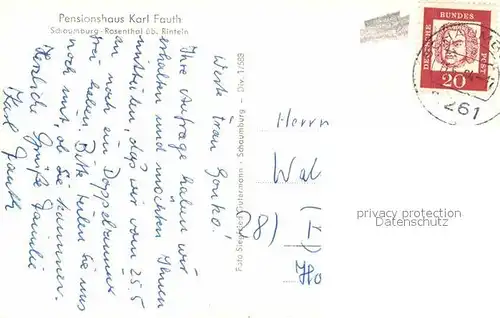 Pensionshaus Karl Fauth
Schaumburg-Rosenthal üb. Rinteln
Werte Frau
Ihre Anfrage haben wir
erhalten und möchten Ihnen
mitteilen, daß wir vom 25.5
an noch ein Doppelzimmer
frei haben. Bitte teilen Sie uns
noch mit, ob Sie kommen.
Herzliche Grüße Familie
Karl Fauth
Foto Schaumburg – Div. 17589
DEUTSCHE BUNDESPOST
20
261
Herrn
Wal
(
Ho
privacy protection
Datenschutz